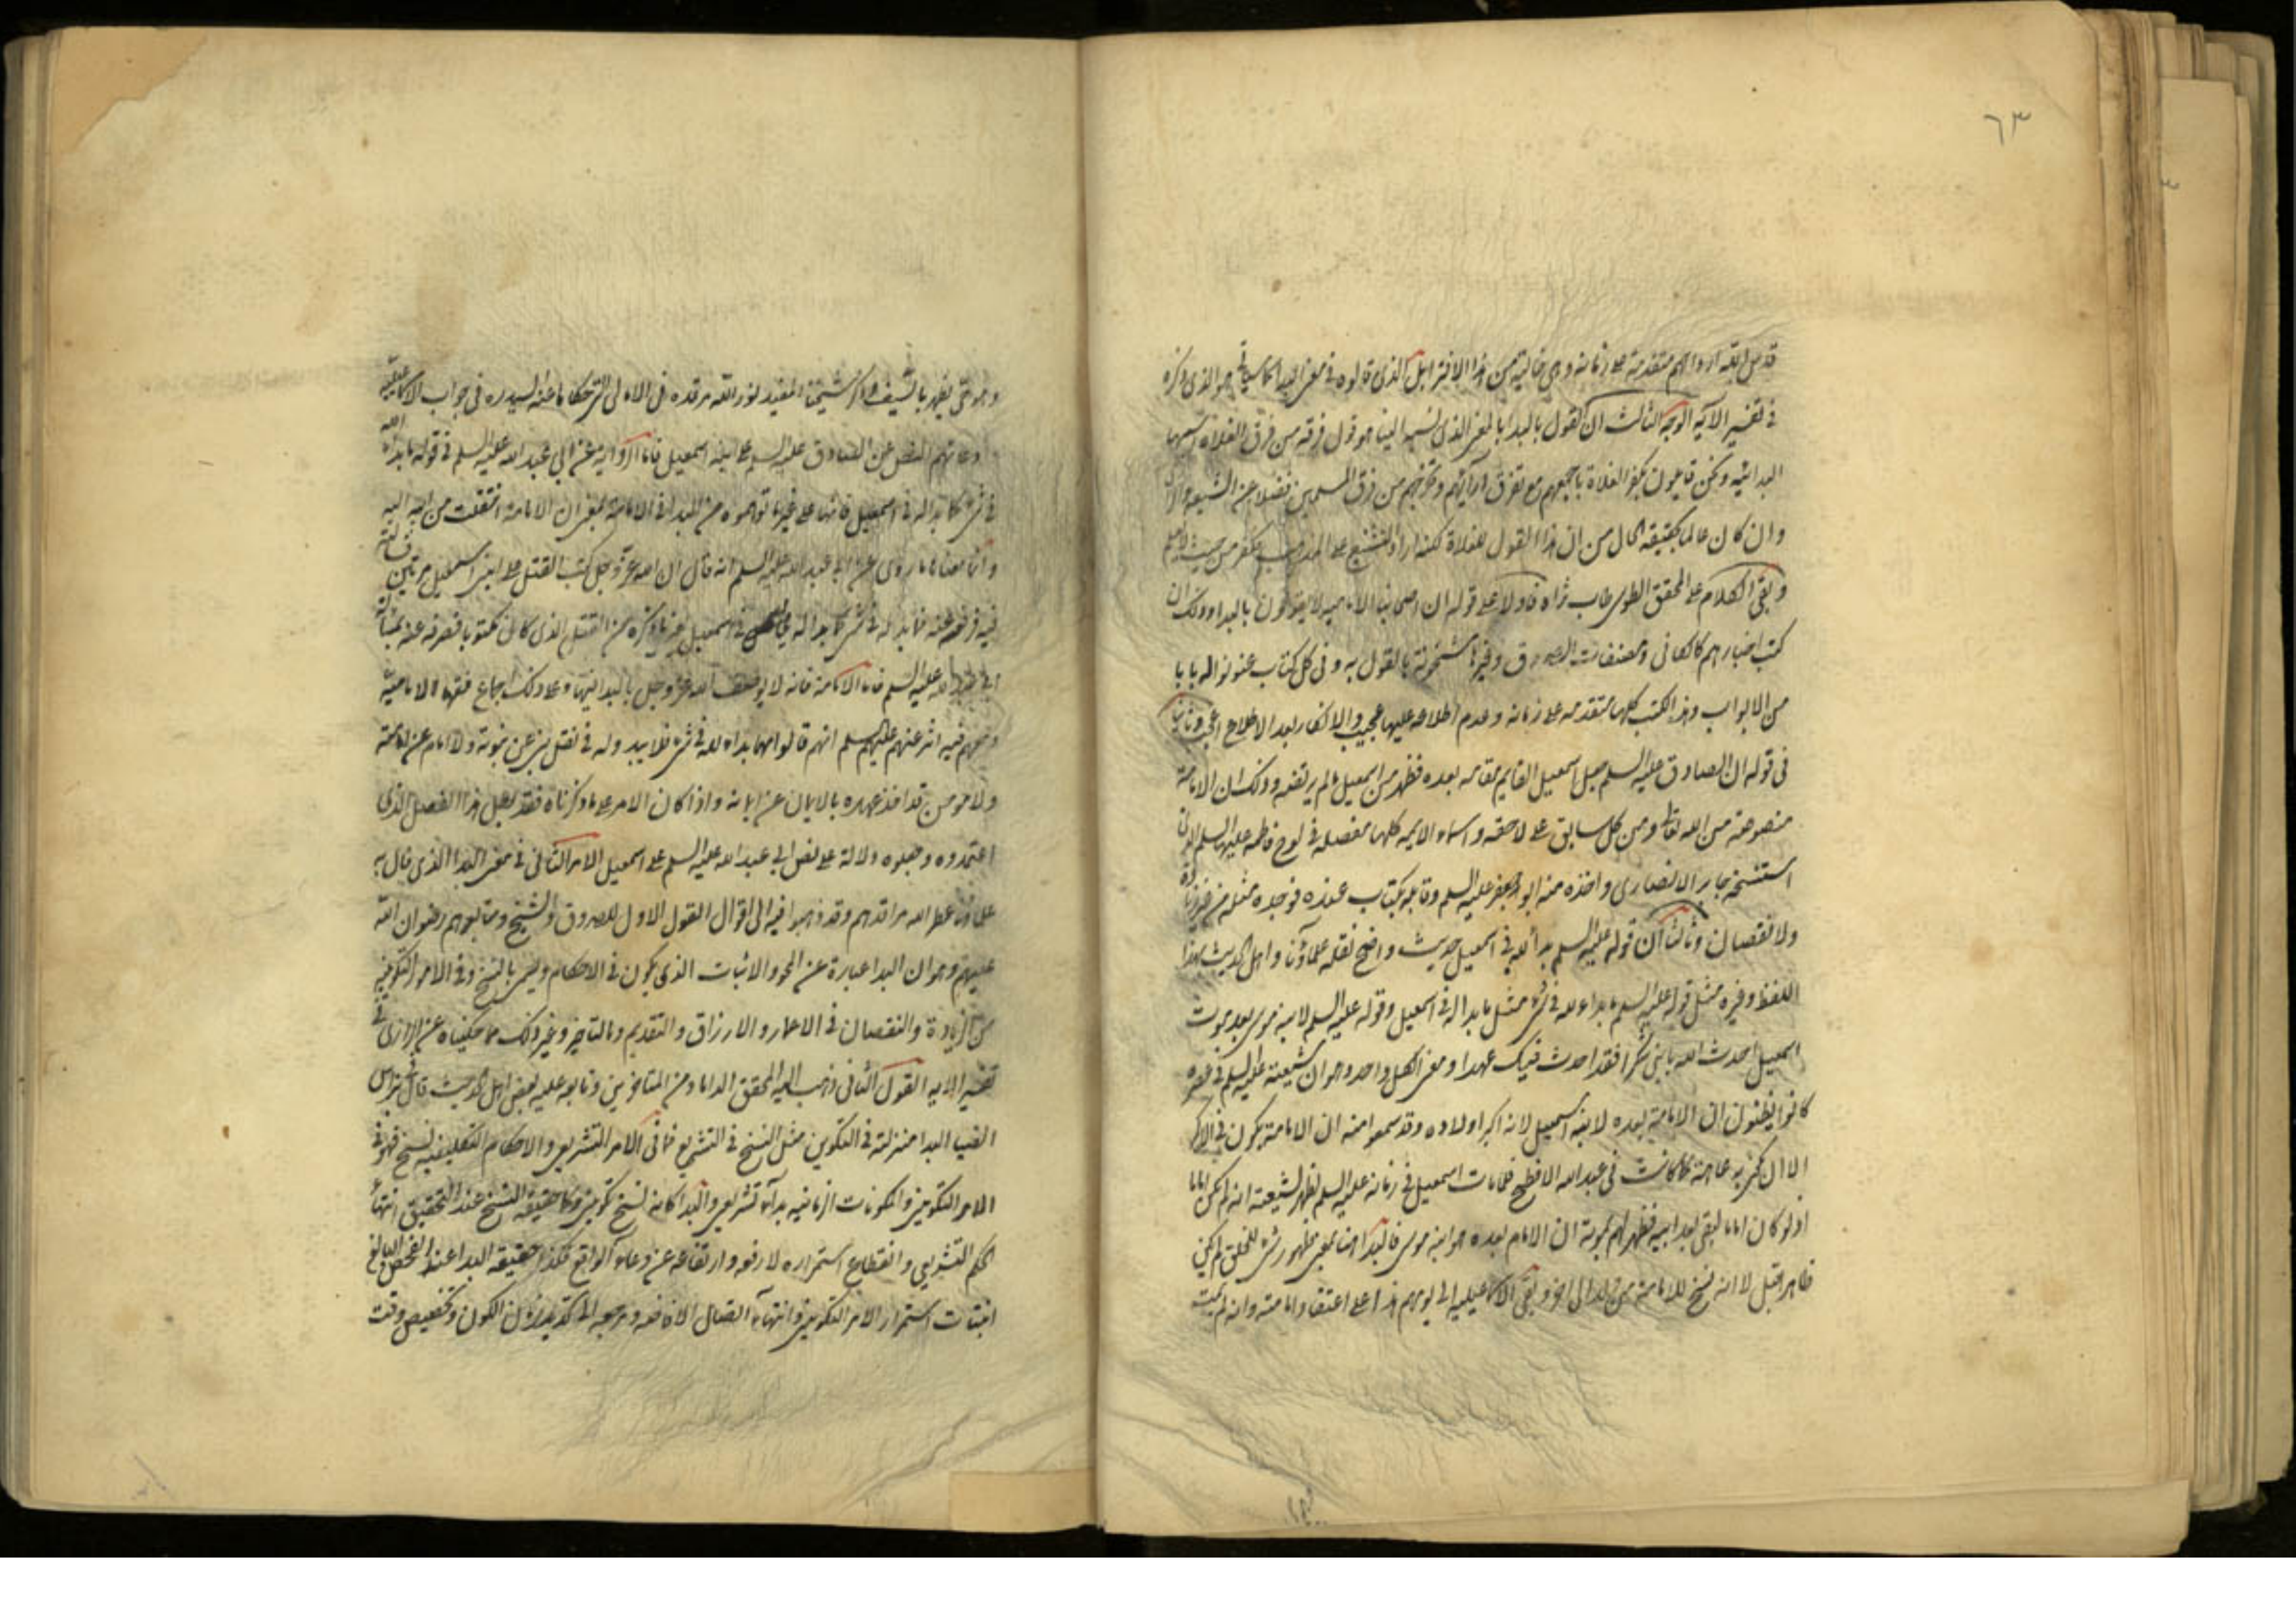 ٦٣
قدس الله ارواحهم متقدمة على زمانه وهي خالية من هذا الافترا بل الذي قالوه في معنى البدا كما سياتي هو الذي ذكره
في تفسير الآية الوجه الثالث ان القول بالبدا بالمعنى الذي نسبه الينا هو قول فرقة من فرق الغلاة اسمها
البدائيه ونحن قايلون بكفر الغلاة باجمعهم مع تفرق ارائهم وخروجهم من فرق المسلمين فضلا عن الشيعة
وان كان عالما بحقيقة الحال من ان هذا القول للغلاة لكنه اراد التشنيع على المذهب من حيث لا يعلم
وبقي الكلام على المحقق الطوسي طاب ثراه فاولا على قوله ان اصحابنا الامامية لا يقولون بالبدا وذلك ان
كتب اخبارهم كالكافي ومصنفات الصدوق وغيرها مشحونة بالقول به وفي كل كتاب عنونوا له بابا
من الابواب وهذه الكتب كلها متقدمه على زمانه وعدم اطلاعه عليها عجيب والانكار بعد الاطلاع اعجب وثانيا
في قوله ان الصادق عليه السلم جعل اسمعيل القايم مقامه بعده فظهر من اسمعيل ما لم يرتضه وذلك ان الامامة
منصوصة من الله تعالى ومن كل سابق على لاحقه واسماء الايمه كلها مفصله في لوح فاطمه عليها السلم الذي
استنسخه جابر الانصاري واخذه منه ابو جعفر عليه السلم وقابله بكتاب عنده فوجده مثله من غير زيادة
ولا نقصان وثالثا ان قوله عليه السلم بدا لله في اسمعيل حديث واضح نقله علماؤنا واهل الحديث بهذا
اللفظ وغيره مثل قوله عليه السلم ما بدا لله في شئ مثل ما بدا له في اسمعيل وقوله عليه السلم لابنه موسى بعد موت
اسمعيل احدث لله يا بني شكرا فقد احدث فيك عهدا ومعنى الكل واحد وهو ان شيعته عليه السلم في عصره
كانوا يظنون ان الامامة بعده لابنه اسمعيل لانه اكبر اولاده وقد سمعوا منه ان الامامة يكون في الاكبر
الا ان يكن به عاهة كما كانت في عبد الله الافطح فلما مات اسمعيل في زمانه عليه السلم ظهر لشيعته انه لم يكن اماما
اذ لو كان اماما لبقي بعد ابيه فظهر لهم بموته ان الامام بعده هو ابنه موسى فالبدا هنا بمعنى ظهور شئ للخلق لم يكن
ظاهرا قبل لا انه نسخ للامامة من ولد الى اخر وبقي الاسماعيليه الى يومهم هذا على اعتقاد امامته وانه لم يمت
وهو حتى يظهر بالسيف وذكر شيخنا المفيد نور الله مرقده في الامالي التي حكاها عنه السيد ره في جواب الاسماعيليه
وعائهم النص عن الصادق عليه السلم على ابنه اسمعيل فاما الرواية عن ابي عبد الله عليه السلم في قوله ما بدا لله
في شئ كما بدا له في اسمعيل فانها على غير ما توهموه من البدا في الامامة بمعنى ان الامامة انتقلت من ابنه اليه
وانما معناها ما روى عن ابي عبد الله عليه السلم انه قال ان الله عز وجل كتب القتل على ابني اسمعيل مرتين فسالته
فيه فرفعه عنه فما بدا له في شئ كما بدا له في اسمعيل يعني ما ذكره من القتل الذي كان مكتوبا فصرفه عنه بمسالة
ابي عبد الله عليه السلم فاما الامامة فانه لا يوصف الله عز وجل بالبدا فيها وعلى ذلك اجماع فقهاء الامامية
ومعهم فيه اثر عنهم عليهم السلم انهم قالوا مهما بدا لله في شئ فلا يبدو له في نقل نبي عن نبوته ولا امام عن امامته
ولا مومن قد اخذ عهده بالايمان عن ايمانه واذا كان الامر على ما ذكرناه فقد بطل هذا الفصل الذي
اعتمدوه وجعلوه دلالة على نص ابي عبد الله عليه السلم على اسمعيل الامر الثاني في معنى البدا الذي قال به
علماؤنا عطر الله مراقدهم وقد ذهبوا فيه الى اقوال القول الاول للصدوق والشيخ ومتابعوهم رضوان الله
عليهم وهو ان البدا عبارة عن المحو والاثبات الذي يكون في الاحكام ويسمى بالنسخ وفي الامور التكوينيه
من الزيادة والنقصان في الاعمار والارزاق والتقديم والتاخير وغير ذلك مما حكيناه عن الرازي في
تفسير الايه القول الثاني ذهب اليه المحقق الداماد من المتاخرين وتابعه عليه بعض اهل الحديث قال في نبراس
الضيا البدا منزلته في التكوين مثل النسخ في التشريع فما في الامر التشريعي والاحكام التكليفيه نسخ فهو في
الامر التكويني والمكونات الزمانيه بدا فالنسخ كانه بدا تشريعي والبدا كانه نسخ تكويني وكما حقيقة النسخ عند التحقيق انتهاء
الحكم التشريعي وانقطاع استمراره لا رفعه وارتفاعه عن وعاء الواقع فكذا حقيقة البدا عند الفحص البالغ
انبتات استمرار الامر التكويني وانتهاء اتصال الافاضه ومرجعه الى تحديد زمان الكون وتخصيص وقت